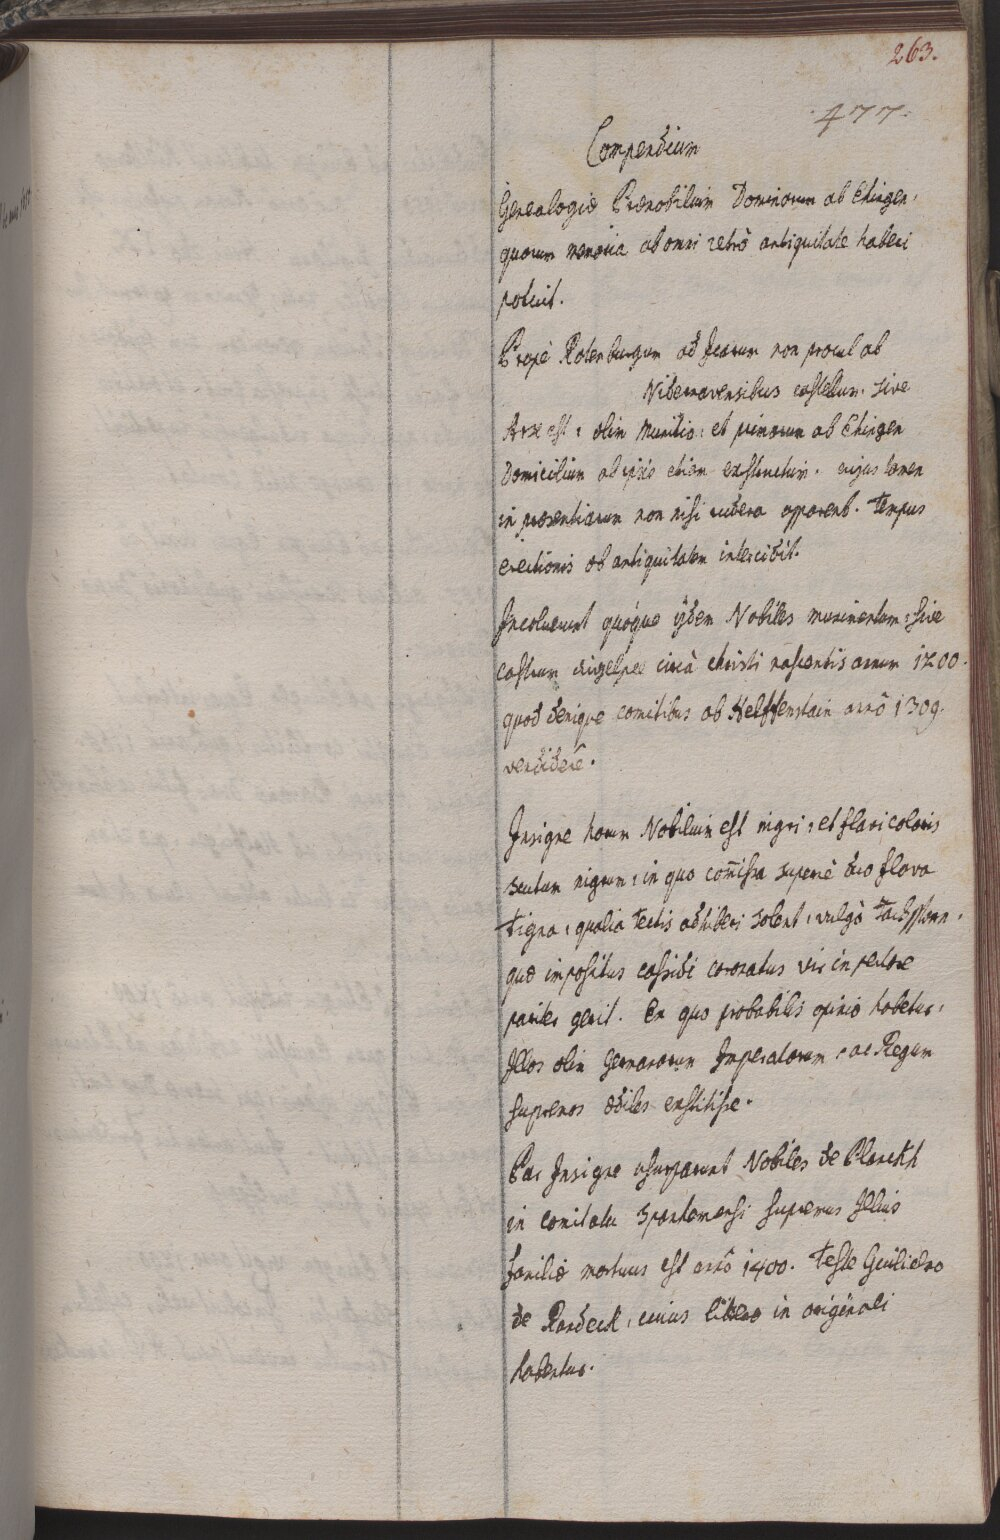 263.
477.
Compendium
Genealogiæ Prænobilium Dominorum ab Ehingen,
quorum memoria ab omni retrò antiquitate haberi
potuit.
Propè Rotenburgum ad Nicarum non procul ab
Nidernavensibus castellum. sive
Arx est, olim munitio, et primorum ab Ehingen
Domicilium ab ipsis etiam exstructum. cujus tamen
in præsentiarum non nisi rudera apparent. Tempus
erectionis ob antiquitatem intercidit.
Incoluerunt quoque ijdem Nobiles munimentum, sive
castrum circà christi nascentis annum 1200.
quod denique comitibus ab Helffenstain annô 1309.
vendidere.
Insigne horum Nobilium est nigri, et flavi coloris
scutum nigrum, in quo com̄issa supernè duo flava
tigna, qualia tectis adhiberi solent, vulgò
quæ impositus cassidi coronatus vir in pectore
pariter gerit. Ex quo probabilis opinio habetur,
Illos olim Germanorum Imperatorum, ac Regum
supremos ædiles exstitisse.
Par Insigne usurparunt Nobiles de
in comitatu Sponhamensi supremus Illius
familiæ mortuus est annô 1400. teste Guilielmo
de Randeck, cuius in originali
habentur.